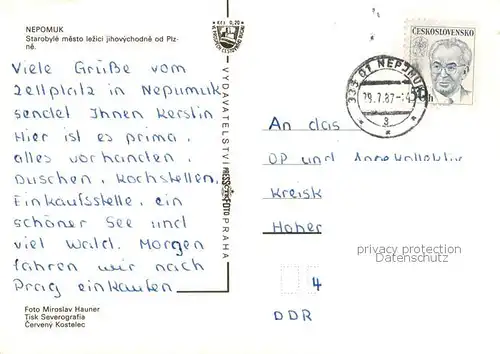 NEPOMUK
Starobylé město ležící jihovýchodně od Plz-
ně.
Viele Grüße vom
Zeltplatz in Nepumuk
sendet Ihnen Kerstin
Hier ist es prima,
alles vorhanden.
Duschen, Kochstellen,
Einkaufsstelle, ein
schöner See und
viel Wald. Morgen
fahren wir nach
Prag einkaufen
Foto Miroslav Hauner
Tisk Severografia
Červený Kostelec
Kčs 0,20
VYDAVATELSTVÍ
PRESSFOTO
PRAHA
ČESKOSLOVENSKO
335 01 NEPOMUK
29.7.87
a
An das
OP und
Kreisk
Hoher
4
DDR
privacy protection
Datenschutz